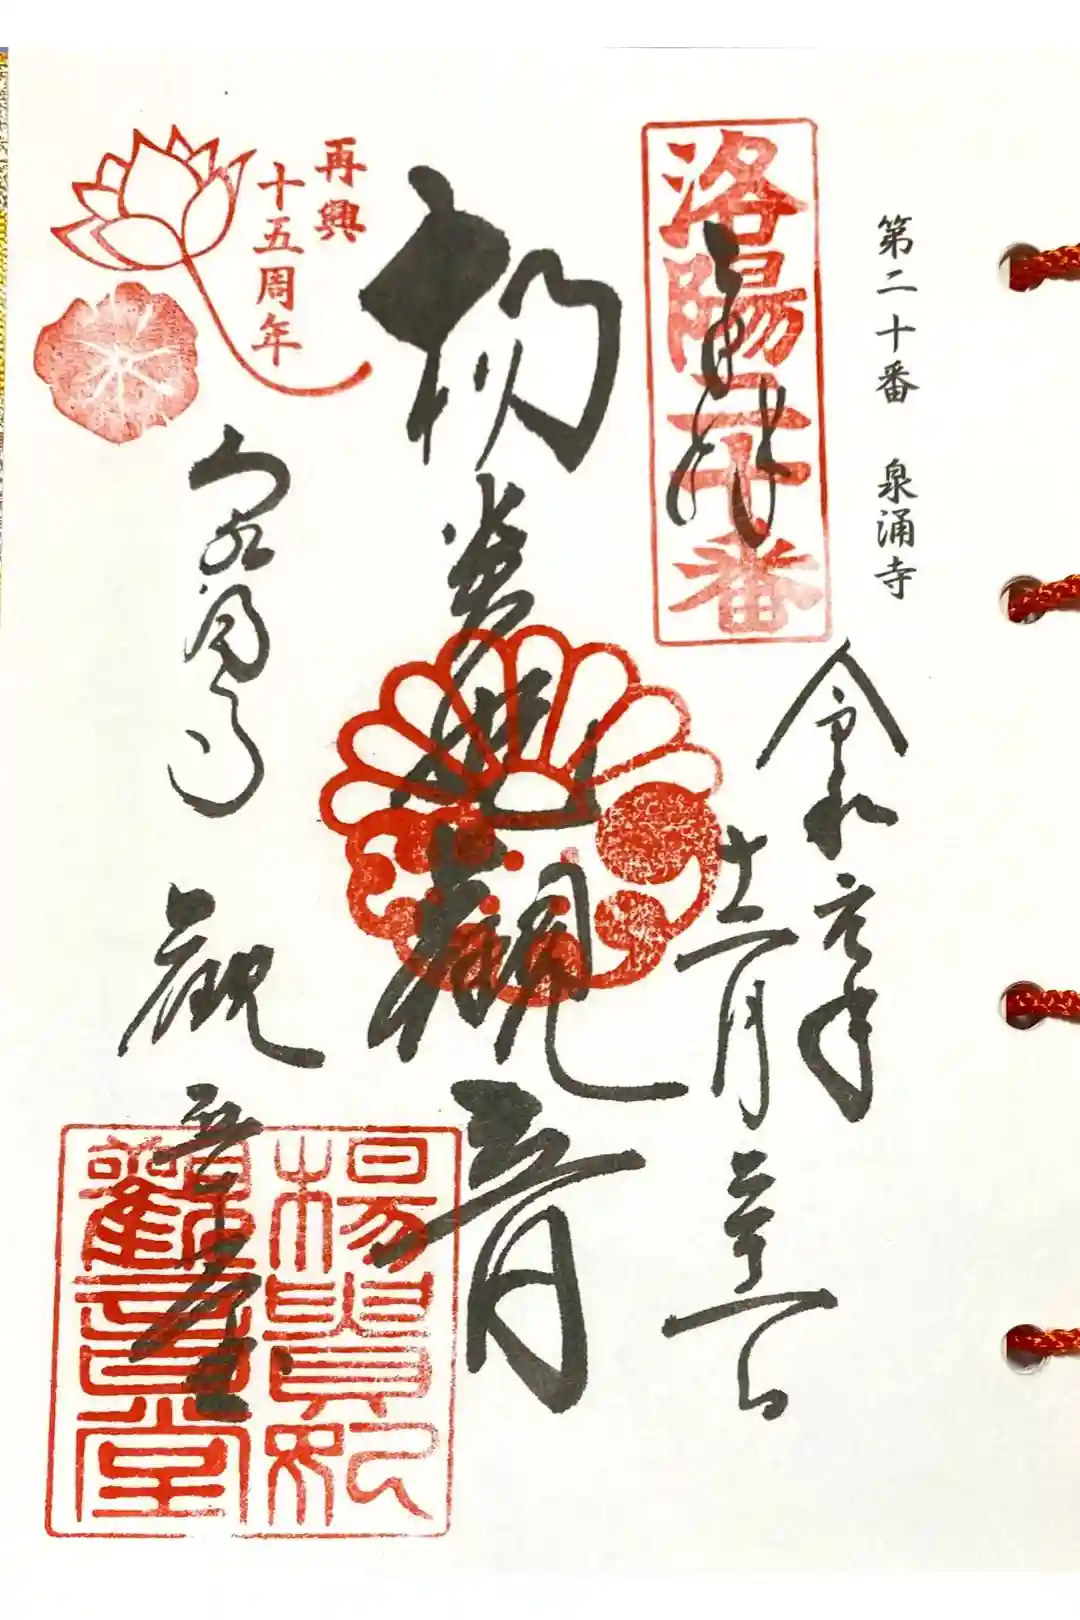 第二十番 泉涌寺
洛陽二十番
奉拝
令和元年
十二月
楊貴妃観音
再興
十五周年
観音堂
楊貴妃
觀音堂